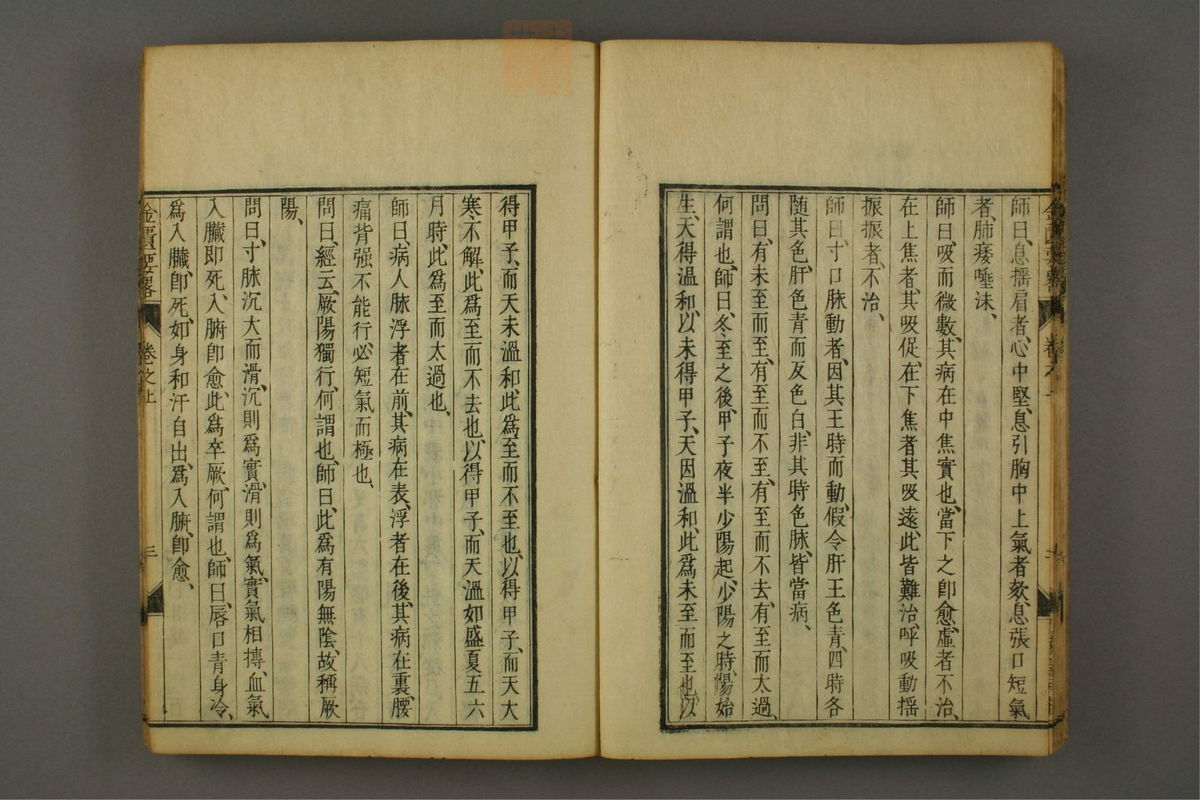 師曰、息揺肩者、心中堅、息引胸中上氣者欬、息張口短氣
者、肺痿唾沫、
師曰、吸而微數、其病在中焦實也、當下之卽愈、虛者不治、
在上焦者、其吸促、在下焦者其吸遠、此皆難治、呼吸動揺
振振者、不治、
師曰、寸口脉動者、因其王時而動、假令肝王色青、四時各
随其色、肝色青而反色白、非其時色脉、皆當病、
問曰、有未至而至、有至而不至、有至而不去、有至而太過、
何謂也、師曰、冬至之後、甲子夜半少陽起、少陽之時、陽始
生、天得溫和、以未得甲子、天因溫和、此爲未至而至也、以
得甲子、而天未溫和、此爲至而不至也、以得甲子、而天大
寒不解、此爲至而不去也、以得甲子、而天溫如盛夏五六
月時、此爲至而太過也、
師曰、病人脉浮者在前、其病在表、浮者在後、其病在裏、腰
痛背强不能行、必短氣而極也、
問曰、經云、厥陽獨行、何謂也、師曰、此爲有陽無陰、故稱厥
陽、
問曰、寸脉沉大而滑、沉則爲實、滑則爲氣、實氣相摶、血氣
入臟卽死、入腑卽愈、此爲卒厥、何謂也、師曰、唇口青身冷、
爲入臟、卽死、如身和汗自出、爲入腑、卽愈、
金匱要畧 卷之上 三